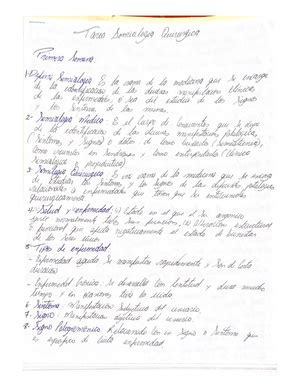 Tarea Semiología Quirúrgica
Primera Semana
1- Definir Semiología: Es la rama de la medicina que se encarga
de la identificación de las diversas manifestaciones clínicas
de las enfermedades, o sea del estudio de los signos
y los síntomas de la misma.
2- Semiología médica: Es el cuerpo de conocimientos que se
de la identificación de las diversas manifestaciones patológicas,
(Síntomas, y Signos) o datos de como buscarlos (semiotecnia),
como reunirlos en síndromes, y como interpretarlos (Clínica
Semiológica o propedéutica)
3- Semiología Quirúrgica: Es una rama de la medicina que se encarga
de estudiar los Síntomas y los signos de las diferentes patologías
relacionadas a enfermedades que
quirúrgicamente
4- Salud y enfermedad: (1) Estado en el que el ser orgánico
ejerce normalmente todas sus funciones, (2) Alteración estructural
o funcional que afecta negativamente el estado de bienestar
de los seres vivos
5- Tipos de enfermedad
-Enfermedad aguda: Se manifiestan y son de corta
duración
-Enfermedad Crónica: se desarrolla con lentitud y duran mucho
tiempo y en ocasiones toda la vida.
6- Síntoma: Manifestación Subjetiva del usuario.
7- Signo: Manifestación objetiva del usuario.
8- Signo Patognomónico: Relacionado con un signo o Síntoma que
es específico de cierta enfermedad